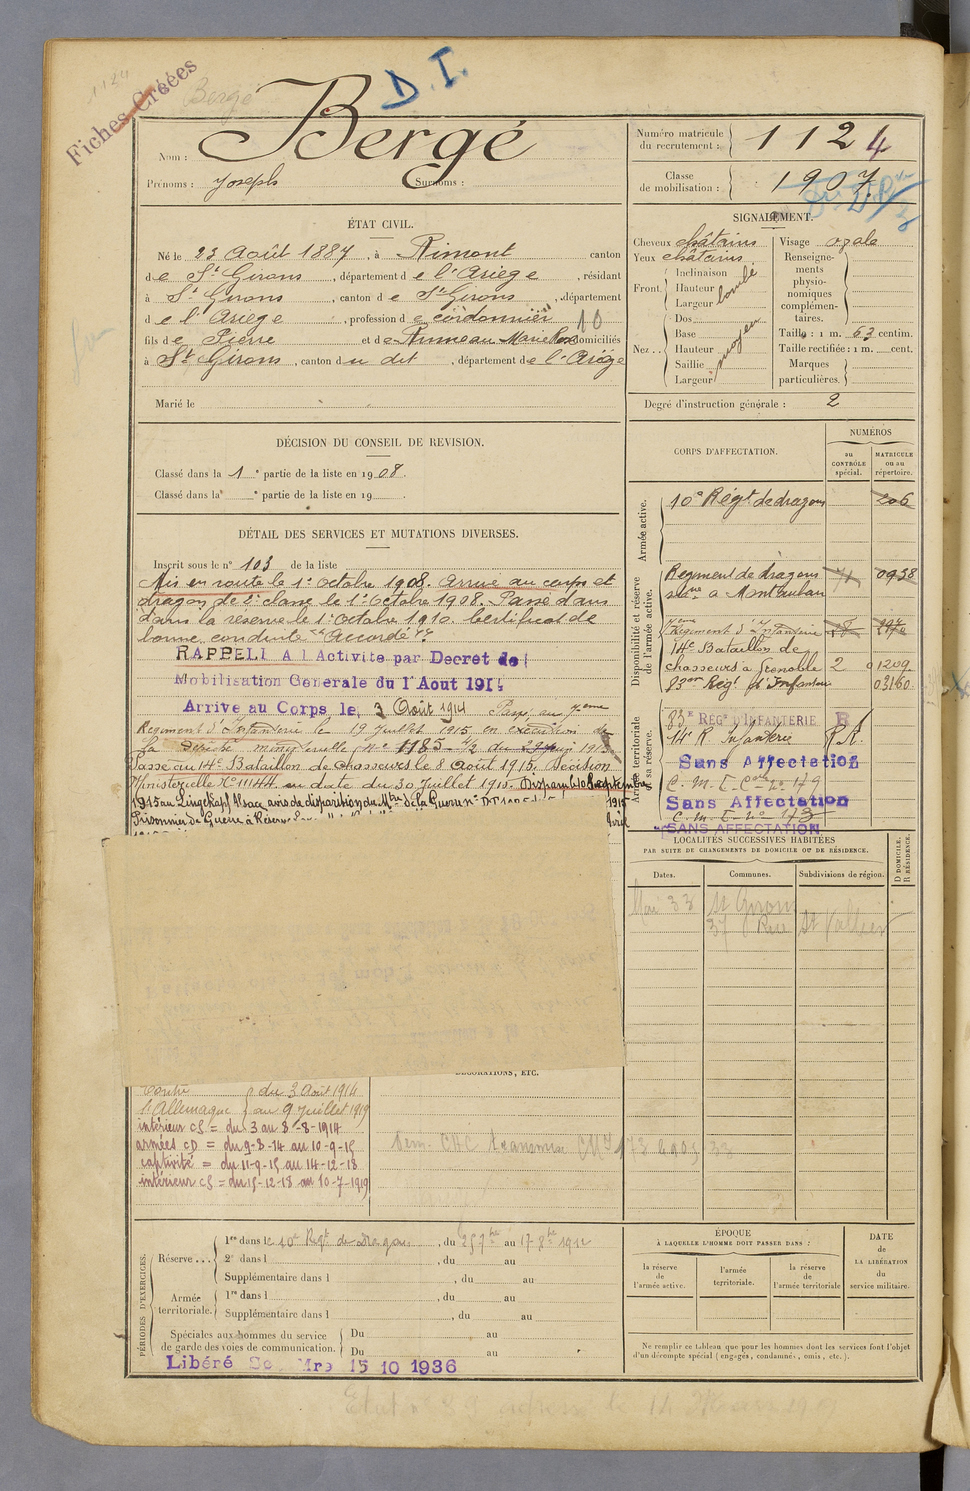 1124
Fiches Créées
Bergé
D. I.
Nom : Bergé
Prénoms : Joseph Surnoms :
Numéro matricule du recrutement : 1124
Classe de mobilisation : 1907
ÉTAT CIVIL.
Né le 23 Août 1887, à Rimont canton
de St Girons, département de l'Ariège, résidant
à St Girons, canton de St Girons, département
de l'Ariège, profession de cordonnier 10
fils de Pierre et de Anneau Marie Rose domiciliés
à St Girons, canton du dit, département de l'Ariège
Marié le
SIGNALEMENT.
Cheveux châtains
Yeux châtains
Front. Inclinaison
Hauteur bombé
Largeur
Nez .. Dos
Base
Hauteur moyen
Saillie
Largeur
Visage ovale
Renseignements physionomiques complémentaires.
Taille : 1 m. 63 centim.
Taille rectifiée : 1 m. cent.
Marques particulières.
Degré d'instruction générale : 2
DÉCISION DU CONSEIL DE REVISION.
Classé dans la 1e partie de la liste en 1908.
Classé dans la e partie de la liste en 19
DÉTAIL DES SERVICES ET MUTATIONS DIVERSES.
Inscrit sous le n° 103 de la liste
Mis en route le 1er Octobre 1908. Arrivé au corps et
dragon de 2e classe le 1er Octobre 1908. Passé dans
dans la réserve le 1er Octobre 1910. Certificat de
bonne conduite "Accordé"
RAPPELE A l Activite par Decret de
Mobilisation Generale du 1 Aout 1914
Arrive au Corps le, 3 Août 1914 Passé au 7eme
Regiment d'Infanterie le 19 Juillet 1915 en exécution de
la Dépêche ministérielle n° 1185
Passé au 14e Bataillon de Chasseurs le 8 Août 1915. Décision
Ministérielle N° 11144 en date du 30 Juillet 1915. Disparu le 10 Septembre
1915 au Lingekopf Alsace avis de disparition du Mre de la Guerre n° 1915
Prisonnier de Guerre à
CORPS D'AFFECTATION.
NUMÉROS
au CONTRÔLE spécial.
MATRICULE ou au répertoire.
Armée active.
10e Régt de dragons 206
Disponibilité et réserve de l'armée active.
Régiment de dragons 0938
à Montauban
7eme Régiment d'Infanterie
14e Bataillon de
chasseurs à Grenoble 2 01209
83e Régt d'Infanterie 03160
Armée territoriale et sa réserve.
83E RÉGT D'INFANTERIE R
14e R. Infanterie R.A.
Sans Affectation
C. M. I. n° 179
Sans Affectation
C. M. I. n° 173
SANS AFFECTATION
LOCALITÉS SUCCESSIVES HABITÉES
PAR SUITE DE CHANGEMENTS DE DOMICILE OU DE RÉSIDENCE.
Dates. Communes. Subdivisions de région. D DOMICILE. R RÉSIDENCE.
Mai 33 St Girons
37 Rue St Vallier
DÉCORATIONS, ETC.
Contre du 3 Août 1914
l'Allemagne au 9 Juillet 1919
intérieur CS = du 3 au 8-8-1914
armées CD = du 9-8-14 au 10-9-15
captivité = du 11-9-15 au 14-12-18
intérieur CS = du 15-12-18 au 10-7-1919
PÉRIODES D'EXERCICES.
Réserve ... 1re dans le 10e Régt de Dragons, du 25 7bre au 17 8bre 1912
2e dans l , du au
Supplémentaire dans l , du au
Armée territoriale. 1re dans l , du au
Supplémentaire dans l , du au
Spéciales aux hommes du service de garde des voies de communication. Du au
Du au
Libéré Se Mre 15 10 1936
ÉPOQUE
À LAQUELLE L'HOMME DOIT PASSER DANS :
la réserve de l'armée active.
l'armée territoriale.
la réserve de l'armée territoriale
DATE de LA LIBÉRATION du service militaire.
Ne remplir ce tableau que pour les hommes dont les services font l'objet
d'un décompte spécial (engagés, condamnés, omis, etc.).